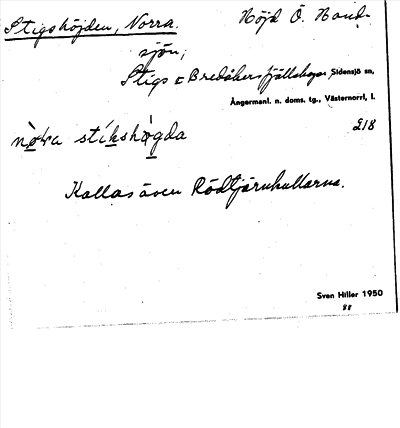 Stigshöjden, Norra. Höjd Ö. Band-
sjön;
Stigs o Bredåkersfjällskogar, Sidensjö sn,
Ångermanl. n. doms. tg., Västernorrl. l.
nòra stíkshø̀gda 218
Kallas även Rödtjärnkullarna.
Sven Hiller 1950
88